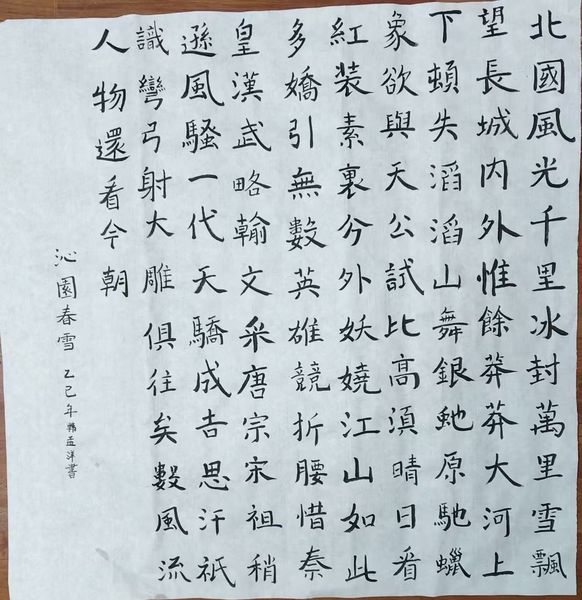 北國風光千里冰封萬里雪飄
望長城内外惟餘莽莽大河上
下頓失滔滔山舞銀虵原馳蠟
象欲與天公試比高須晴日看
紅装素裹分外妖嬈江山如此
多嬌引無數英雄競折腰惜秦
皇漢武略輸文采唐宗宋祖稍
遜風騷一代天驕成吉思汗祇
識彎弓射大雕俱往矣數風流
人物還看今朝
沁園春雪 乙巳年韩孟洋書